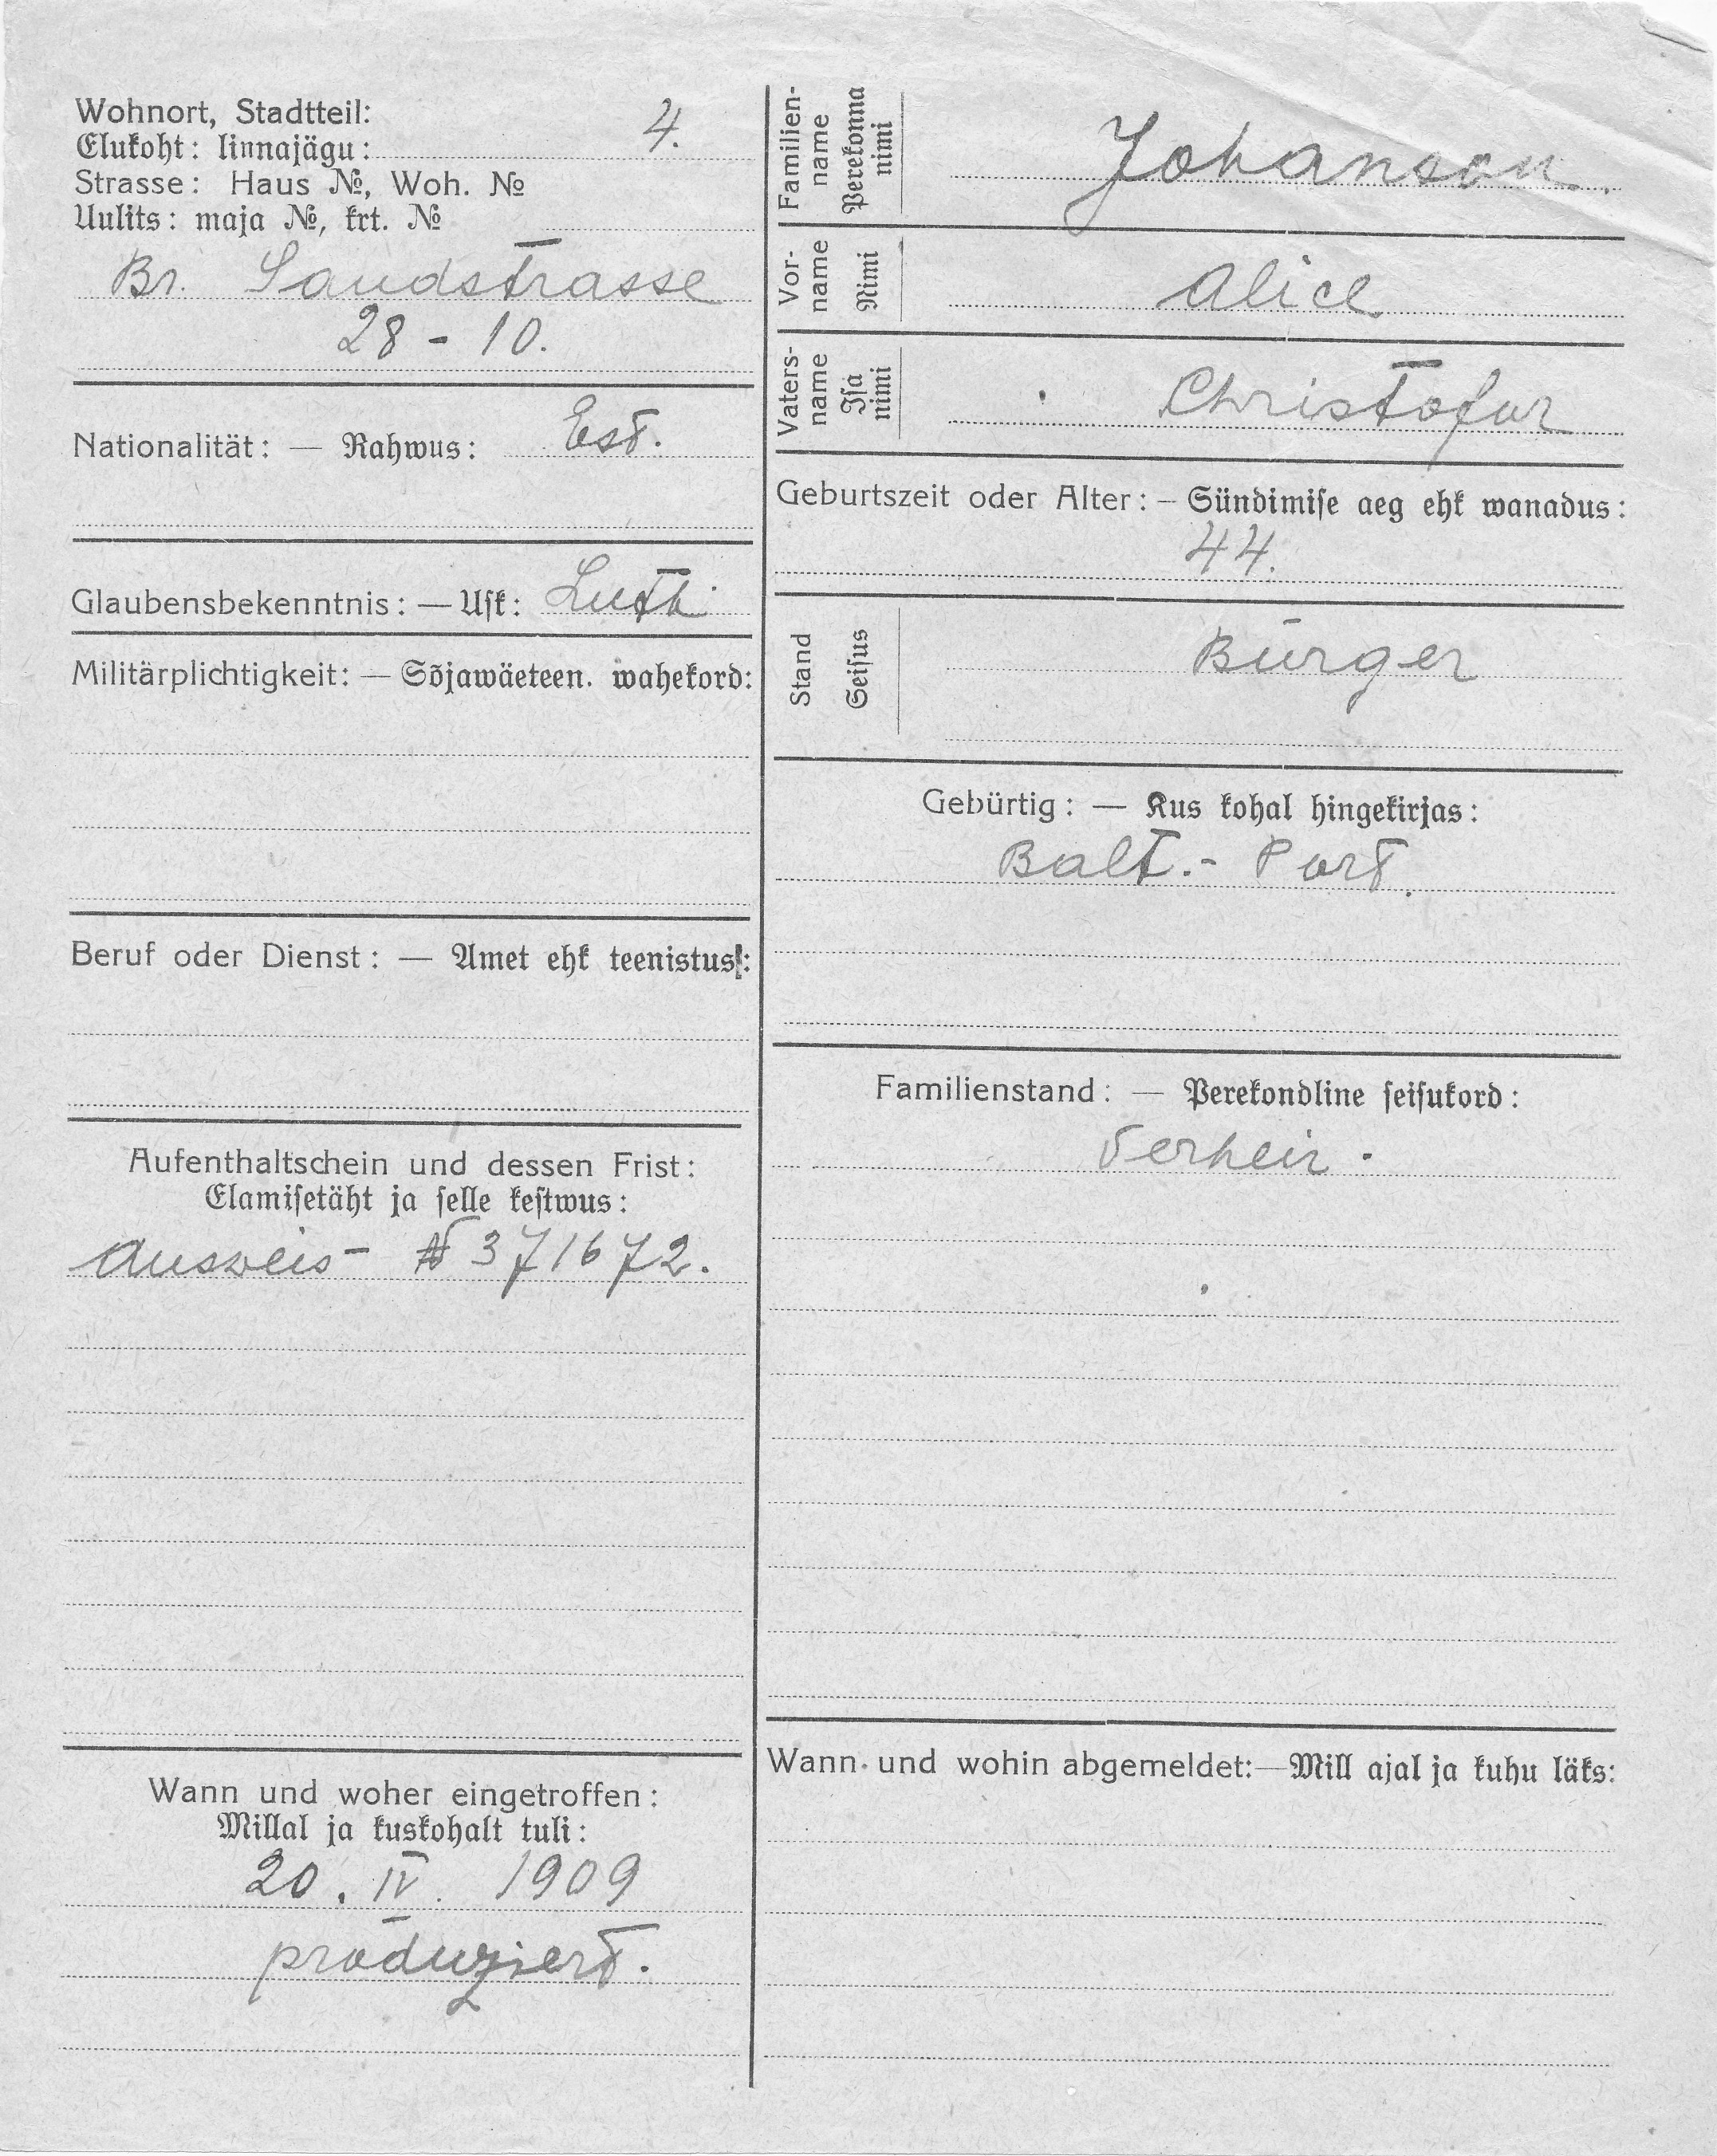 Wohnort, Stadtteil:
Elukoht: linnajägu: 4.
Strasse: Haus №, Woh. №
Uulits: maja №, krt. №
Br. Sandstrasse
28 - 10.
Nationalität: — Rahwus: Est.
Glaubensbekenntnis: — Usk: Luth.
Militärplichtigkeit: — Sõjawäeteen. wahekord:
Beruf oder Dienst: — Amet ehk teenistus:
Aufenthaltschein und dessen Frist:
Elamisetäht ja selle kestwus:
Ausweis - № 371672.
Wann und woher eingetroffen:
Millal ja kuskohalt tuli:
20. IV. 1909
produziert.
Familien-
name
Perekonna
nimi
Johanson.
Vor-
name
Nimi
Alice
Vaters-
name
Isa
nimi
Christofor
Geburtszeit oder Alter: – Sündimise aeg ehk wanadus:
44.
Stand
Seisus
Bürger
Gebürtig: — Kus kohal hingekirjas:
Balt.- Port.
Familienstand: — Perekondline seisukord:
Verheir.
Wann und wohin abgemeldet:—Mill ajal ja kuhu läks: